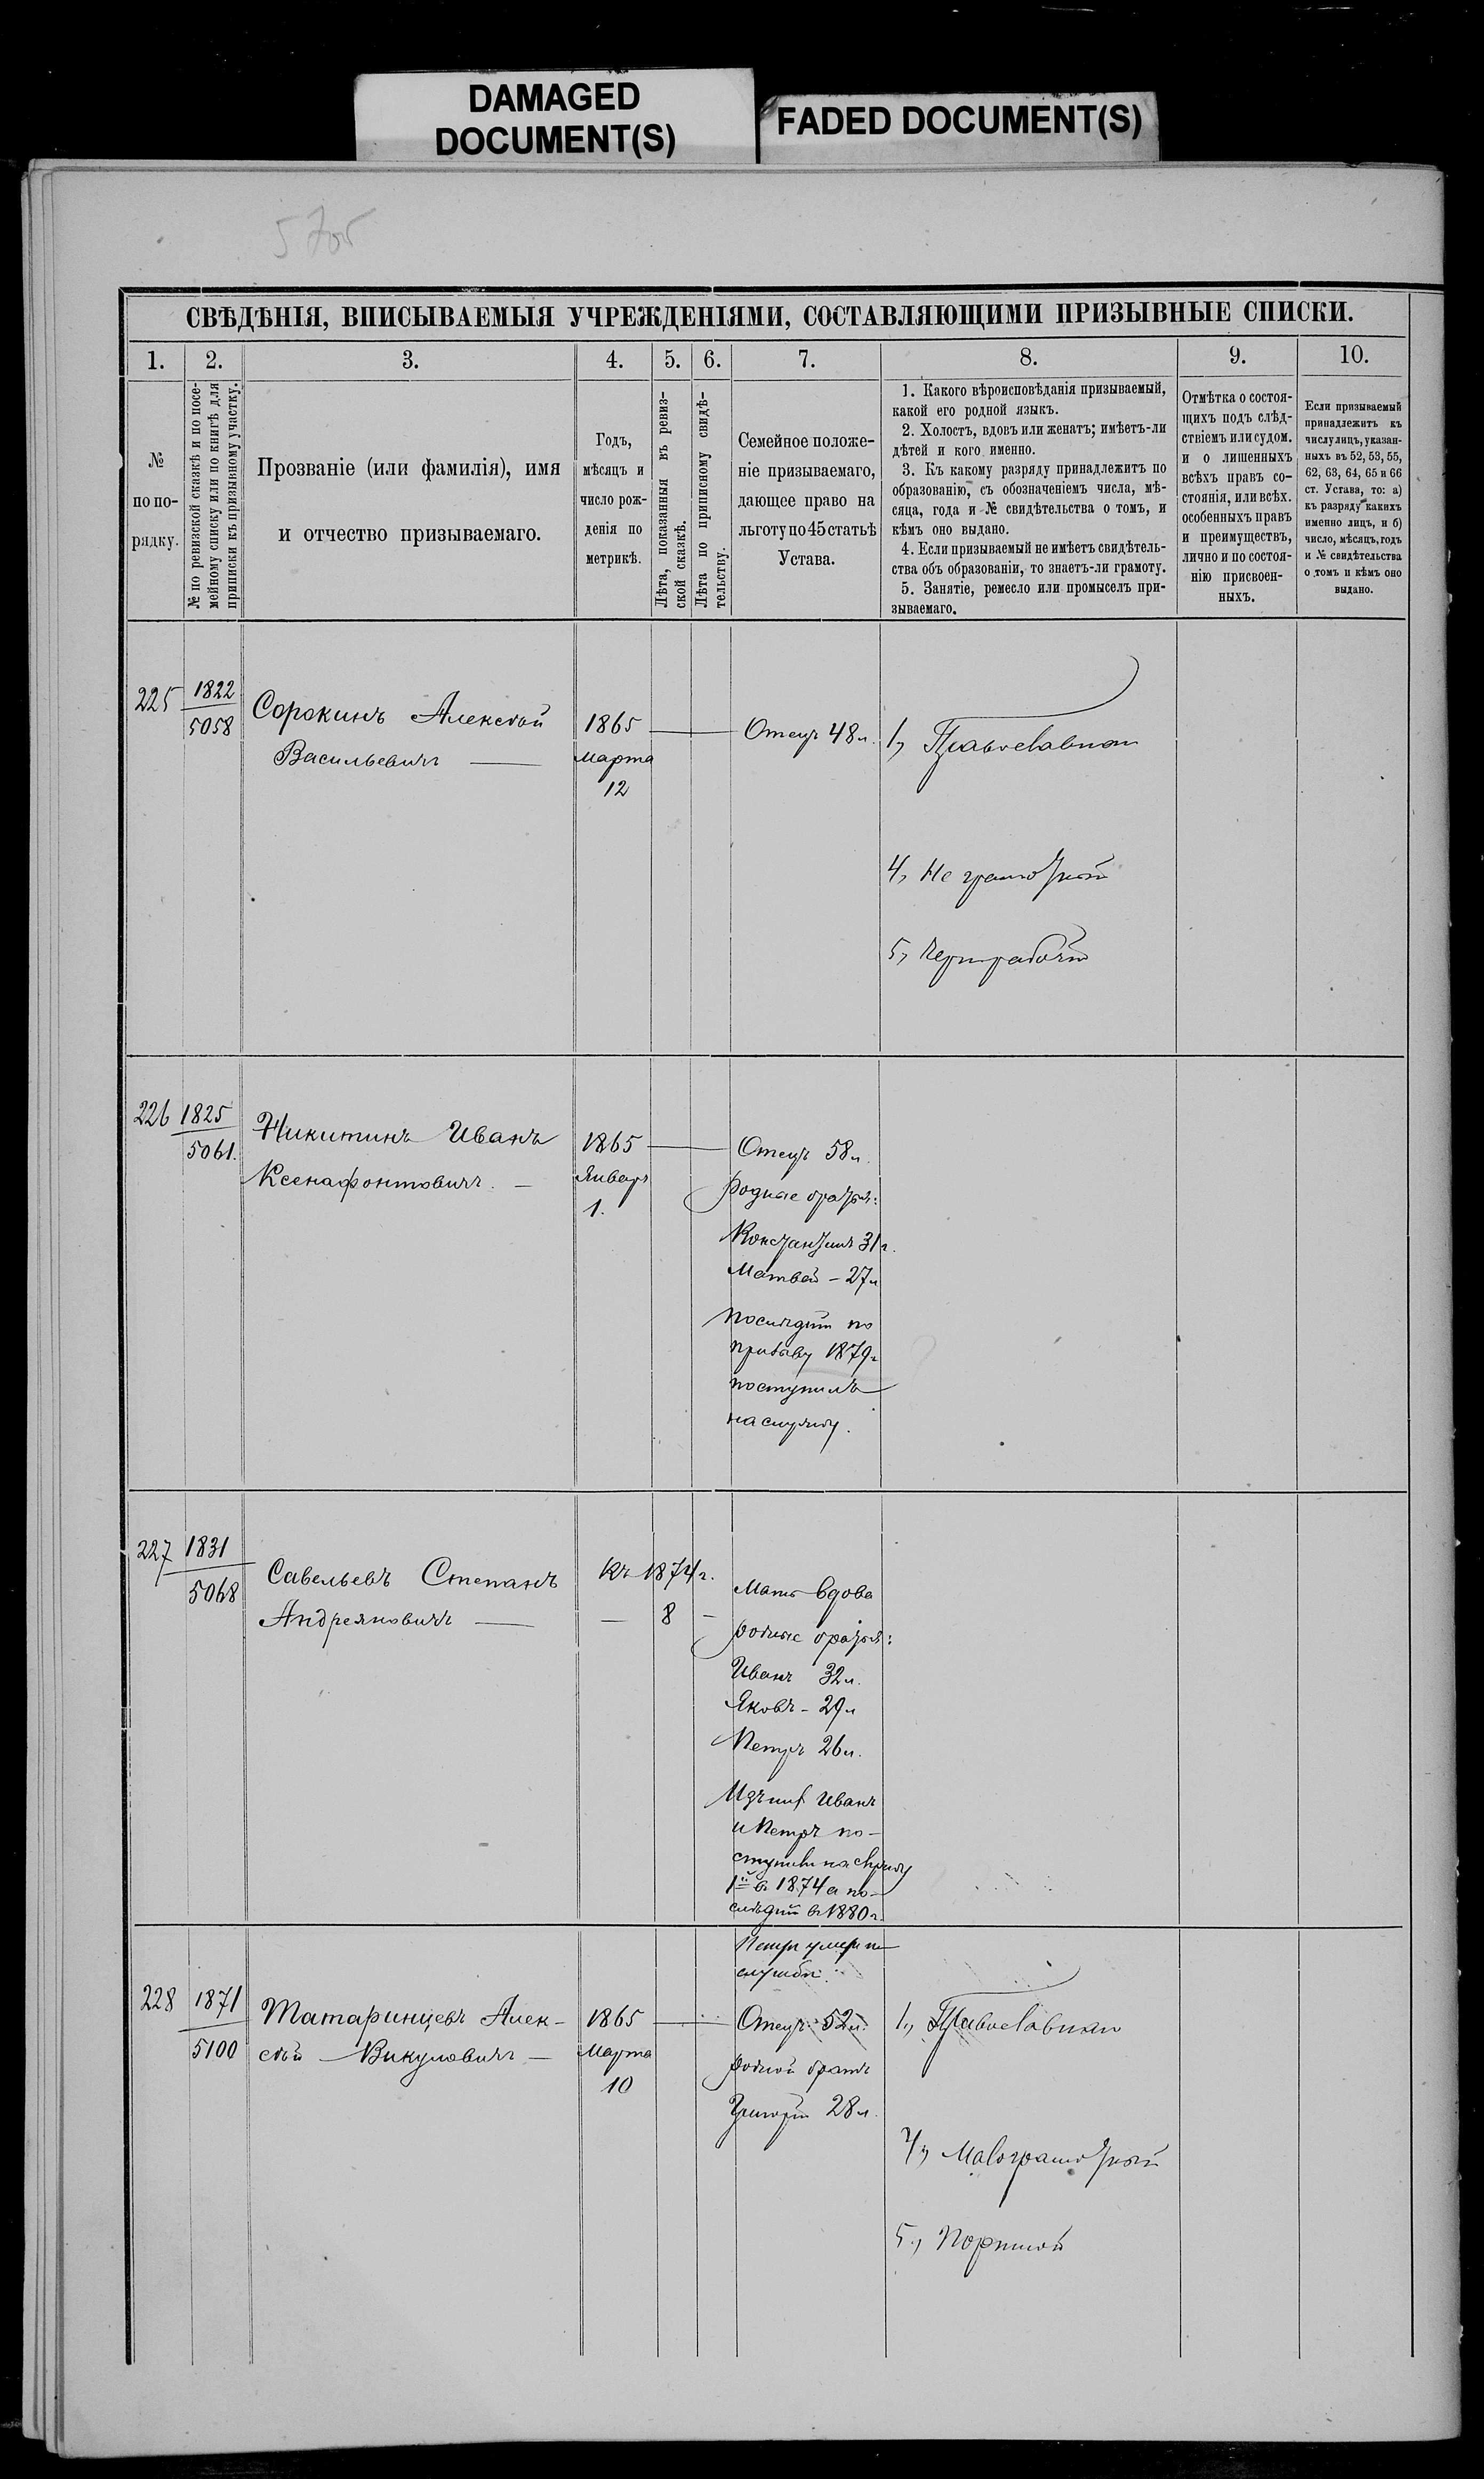 DAMAGED
DOCUMENT(S)
FADED DOCUMENT(S)
СВѢДѢНІЯ, ВПИСЫВАЕМЫЯ УЧРЕЖДЕНІЯМИ, СОСТАВЛЯЮЩИМИ ПРИЗЫВНЫЕ СПИСКИ.
1. 2. 3. 4. 5. 6. 7. 8. 9. 10.
№
по по-
рядку.
№ по ревизской сказкѣ и по посе-
мейному списку или по книгѣ для
приписки къ призывному участку.
Прозваніе (или фамилія), имя
и отчество призываемаго.
Годъ,
мѣсяцъ и
число рож-
денія по
метрикѣ.
Лѣта, показанныя въ ревиз-
ской сказкѣ.
Лѣта по приписному свидѣ-
тельству.
Семейное положе-
ніе призываемаго,
дающее право на
льготу по 45 статьѣ
Устава.
1. Какого вѣроисповѣданія призываемый,
какой его родной языкъ.
2. Холостъ, вдовъ или женатъ; имѣетъ-ли
дѣтей и кого именно.
3. Къ какому разряду принадлежитъ по
образованію, съ обозначеніемъ числа, мѣ-
сяца, года и № свидѣтельства о томъ, и
кѣмъ оно выдано.
4. Если призываемый не имѣетъ свидѣтель-
ства объ образованіи, то знаетъ-ли грамоту.
5. Занятіе, ремесло или промыселъ при-
зываемаго.
Отмѣтка о состоя-
щихъ подъ слѣд-
ствіемъ или судом.
и о лишенныхъ
всѣхъ правъ со-
стоянія, или всѣх.
особенныхъ правъ
и преимуществъ,
лично и по состоя-
нію присвоен-
ныхъ.
Если призываемый
принадлежитъ къ
числу лицъ, указан-
ныхъ въ 52, 53, 55,
62, 63, 64, 65 и 66
ст. Устава, то: а)
къ разряду какихъ
именно лицъ, и б)
число, мѣсяцъ, годъ
и № свидѣтельства
о томъ и кѣмъ оно
выдано.
225 1822
5058
Сорокинъ Алексѣй
Васильевичъ —
1865
Марта
12
Отецъ 48 л.
1, Православнаго
4, Не грамотный
5, Чернорабочій
226 1825
5061.
Никитинъ Иванъ
Ксенафонтовичъ. —
1865
Январь
1.
Отецъ 58 л.
Родные братья:
Константинъ 31 г.
Матвѣй – 27 л
послѣдній по
призыву 1879 г
поступилъ
на службу.
227 1831
5068
Савельевъ Степанъ
Андреяновичъ —
Къ 1874 г.
— 8 –
Мать вдова
родные братья:
Иванъ 32 л.
Яковъ – 29 л
Петръ 26 л.
Изъ них Иванъ
и Петръ по-
ступили на службу
1й въ 1874 а по-
слѣдній въ 1880 г.
Петръ умеръ на
службѣ.
228 1871
5100
Татаринцевъ Алек-
сѣй Викуловичъ —
1865
Марта
10
Отецъ 52 л.
родной братъ
Григорій 28 л.
1, Православнаго
4, Малограмотный
5, Портной